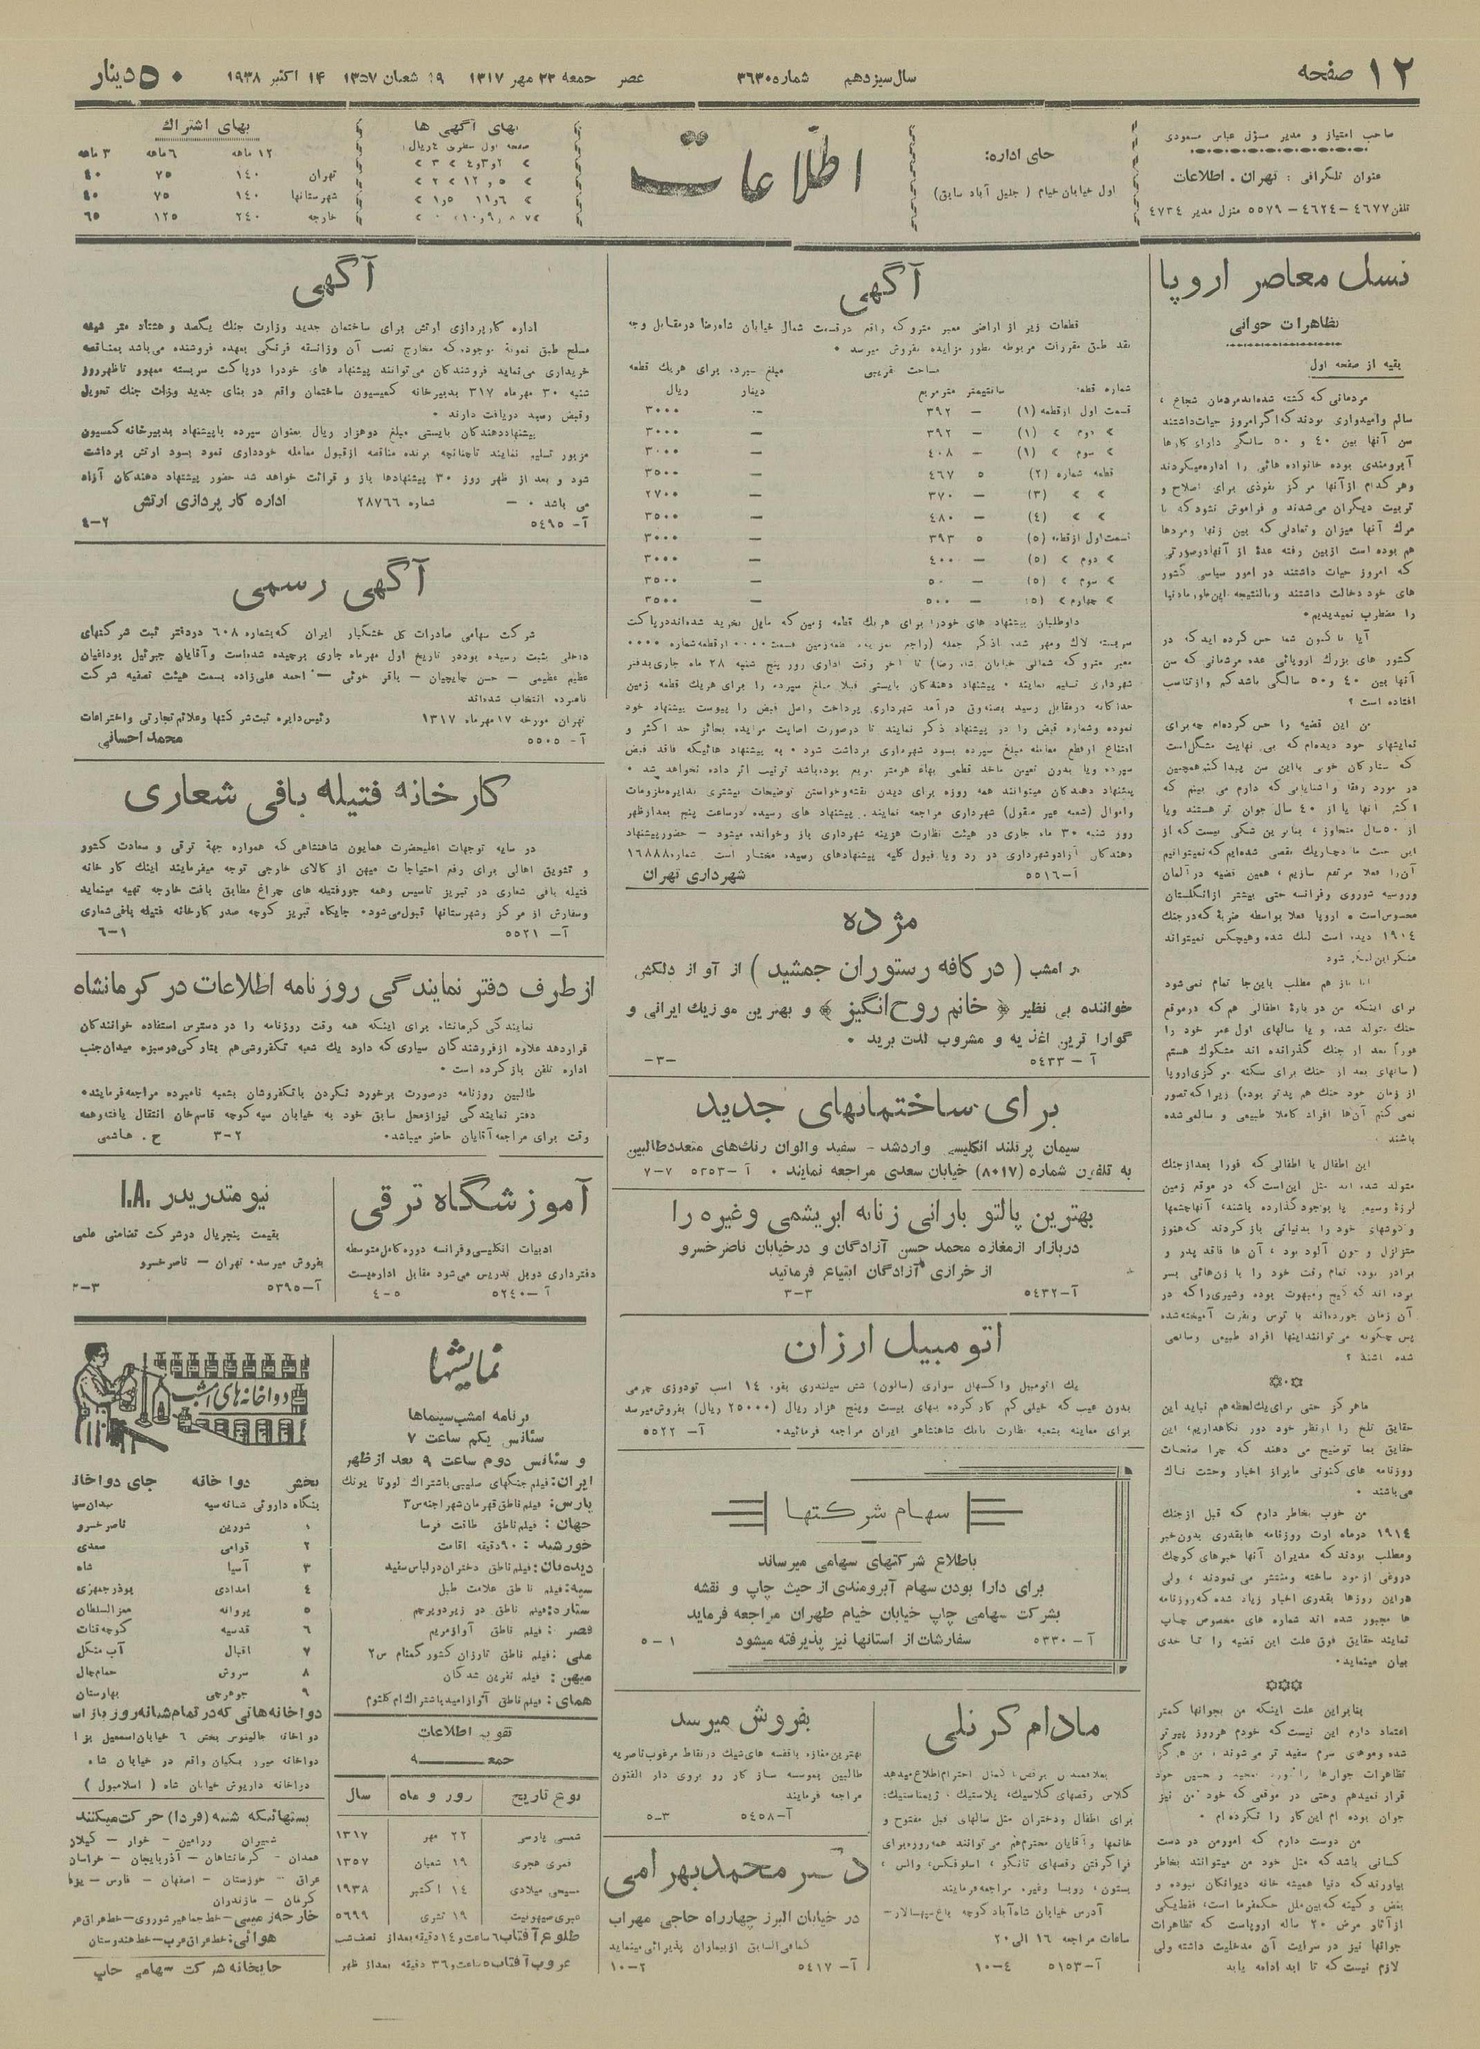 ۱۲ صفحه
سال سیزدهم شماره ۳۶۳۰
عصر جمعه ۲۲ مهر ۱۳۱۷ ۱۹ شعبان ۱۳۵۷ ۱۴ اکتبر ۱۹۳۸
۵۰ دینار
صاحب امتیاز و مدیر مسؤل عباس مسعودی
عنوان تلگرافی : تهران . اطلاعات
تلفن ۴۶۷۷ – ۴۶۲۴ – ۵۵۷۹ منزل مدیر ۴۷۳۴
جای اداره:
اول خیابان خیام ( جلیل آباد سابق)
اطلاعات
بهای آگهی ها
صفحه اول سطری ۴ ریال
بهای اشتراك
۱۲ ماهه ۶ ماهه ۳ ماهه
تهران ۱۴۰ ۷۵ ۴۰
شهرستانها ۱۴۰ ۷۵ ۴۰
خارجه ۲۴۰ ۱۲۵ ۶۵
نسل معاصر اروپا
تظاهرات جوانی
بقیه از صفحه اول
مردمانی که کشته شده‌اند مردمان شجاع ،
سالم و امیدواری بودند که اگر امروز حیات داشتند
سن آنها بین ۴۰ و ۵۰ سالگی دارای کارها
آبرومندی بوده خانواده هائی را اداره میکردند
و هر کدام از آنها مرکز نفوذی برای اصلاح و
تربیت دیگران می‌شدند و فراموش نشود که با
مرك آنها میزان و تعادلی که بین زنها و مردها
هم بوده است از بین رفته عدهٔ از آنها در صورتی
که امروز حیات داشتند در امور سیاسی کشور
های خود دخالت داشتند و بالنتیجه این طور ما دنیا
را مضطرب نمیدیدیم.
آیا تا کنون شما حس کرده اید که در
کشور های بزرك اروپائی عده مردمانی که سن
آنها بین ۴۰ و ۵۰ سالگی باشد کم و از تناسب
افتاده است ؟
من این قضیه را حس کرده‌ام چه برای
نمایشهای خود دیده‌ام که بی نهایت مشگل است
که ستارگان خوبی با این سن پیدا کنم همچنین
در مورد رفقا و آشنایانی که دارم می بینم که
اکثر آنها یا از ۴۰ سال جوان تر هستند ویا
از ۵۰ سال متجاوز ، بنابر این شکی نیست که از
این حیث ما دچار یك نقصی شده‌ایم که نمیتوانیم
آن‌را فعلا مرتفع سازیم ، همین قضیه در آلمان
و روسیه شوروی و فرانسه حتی بیشتر از انگلستان
محسوس است . اروپا فعلا بواسطه ضربهٔ که در جنك
۱۹۱۴ دیده است لنك شده و هیچکس نمیتواند
منکر این لنگی شود
اما باز هم مطلب باین جا تمام نمی‌شود
برای اینکه من در بارهٔ اطفالی هم که در موقع
جنك متولد شده و یا سالهای اول عمر خود را
فوراً بعد از جنك گذرانده اند مشکوك هستم
( سالهای بعد از جنك برای سکنه مرکزی اروپا
از زمان خود جنك هم بدتر بود) زیرا که تصور
نمی کنم آن‌ها افراد کاملا طبیعی و سالمی شده
باشند .
این اطفال یا اطفالی که فوراً بعد از جنك
متولد شده اند مثل این است که در موقع زمین
لرزهٔ وسیعی پا بوجود گذارده باشند، آنها چشمها
و گوشهای خود را بدنیائی باز کردند که هنوز
متزلزل و خون آلود بود ، آن ها فاقد پدر و
برادر بوده تمام وقت خود را با زن‌هائی بسر
برده اند که گیج و مبهوت بوده و شیری را که در
آن زمان خورده‌اند با ترس و نفرت آمیخته شده
پس چگونه می توانند اینها افراد طبیعی و سالمی
شده باشند ؟
ما هرگز حتی برای یك لحظه هم نباید این
حقایق تلخ را از نظر خود دور نگاهداریم، این
حقایق بما توضیح می دهند که چرا صفحات
روزنامه های کنونی ما پر از اخبار وحشت ناك
می‌باشند .
من خوب بخاطر دارم که قبل از جنك
۱۹۱۴ در ماه اوت روزنامه ها بقدری بدون خبر
و مطلب بودند که مدیران آنها خبرهای کوچك
دروغی از خود ساخته و منتشر می نمودند ، ولی
در این روزها بقدری اخبار زیاد شده که روزنامه
ها مجبور شده اند شماره های مخصوص چاپ
نمایند حقایق فوق علت این قضیه را تا حدی
بیان مینماید.
بنابراین علت اینکه من بجوانها کمتر
اعتماد دارم این نیست که خودم هر روز پیر تر
شده و موهای سرم سفید تر می شوند ، من هرگز
تظاهرات جوانها را مورد تمجید و تحسین خود
قرار نمیدهم وحتی در موقعی که خود من نیز
جوان بوده ام این کار را نکرده‌ام .
من دوست دارم که امور من در دست
کسانی باشد که مثل خود من میتوانند بخاطر
بیاورند که دنیا همیشه خانه دیوانگان نبوده و
بغض و کینه که بین ملل حکمفرما است، فقط یکی
از آثار مرض ۲۰ ساله اروپاست که تظاهرات
جوانها نیز در سرایت آن مدخلیت داشته ولی
لازم نیست که تا ابد ادامه یابد
آگهی
قطعات زیر از اراضی معبر متروکه واقع در قسمت شمال خیابان شاهرضا در مقابل وجه
نقد طبق مقررات مربوطه بطور مزایده بفروش میرسد .
مساحت تقریبی مبلغ سپرده برای هر یك قطعه
شماره قطعه سانتیمتر متر مربع دینار ریال
قسمت اول از قطعه (۱) — ۳۹۲ — ۳۰۰۰
» دوم » (۱) — ۳۹۲ — ۳۰۰۰
» سوم » (۱) — ۴۰۸ — ۳۰۰۰
قطعه شماره (۲) ۵ ۴۶۷ — ۳۵۰۰
» » (۳) — ۳۷۰ — ۲۷۰۰
» » (۴) — ۴۸۰ — ۳۵۰۰
قسمت اول از قطعه (۵) ۵ ۳۹۳ — ۳۰۰۰
» دوم » (۵) — ۴۰۰ — ۳۰۰۰
» سوم » (۵) — ۵۰۰ — ۳۵۰۰
» چهارم » (۵) — ۵۰۰ — ۳۵۰۰
داوطلبان پیشنهاد های خود را برای هر یك قطعه زمین که مایل بخرید شده‌اند در پاکت
سربسته لاك و مهر شده با ذکر جمله (راجع بمزایده قطعه زمین قسمت ۰۰۰۰ از قطعه شماره ۰۰۰۰
معبر متروکه شمالی خیابان شاه رضا) تا آخر وقت اداری روز پنج شنبه ۲۸ ماه جاری بدفتر
شهرداری تسلیم نمایند . پیشنهاد دهندگان بایستی قبلا مبلغ سپرده را برای هر یك قطعه زمین
جداگانه در مقابل رسید بصندوق درآمد شهرداری پرداخت و اصل قبض را پیوست پیشنهاد خود
نموده و شماره قبض را در پیشنهاد ذکر نمایند تا در صورت اصابت مزایده بحائز حد اکثر و
امتناع از قطع معامله مبلغ سپرده بسود شهرداری برداشت شود . به پیشنهاد هائیکه فاقد قبض
سپرده ویا بدون تعیین ماخذ قطعی بهاء هر متر مربع بوده باشد ترتیب اثر داده نخواهد شد .
پیشنهاد دهندگان میتوانند همه روزه برای دیدن نقشه و خواستن توضیحات بیشتری بدایره ملزومات
و اموال (شعبه غیر منقول) شهرداری مراجعه نمایند. پیشنهاد های رسیده در ساعت پنج بعد از ظهر
روز شنبه ۳۰ ماه جاری در هیئت نظارت هزینه شهرداری باز و خوانده میشود – حضور پیشنهاد
دهندگان آزاد و شهرداری در رد ویا قبول کلیه پیشنهادهای رسیده مختار است شماره ۱۶۸۸۸
آ–۵۵۱۶ شهرداری تهران
مژده
از امشب ( در کافه رستوران جمشید ) از آواز دلکش
خواننده بی نظیر « خانم روح انگیز » و بهترین موزیك ایرانی و
گوارا ترین اغذیه و مشروب لذت برید .
آ – ۵۴۳۳ –۳–
برای ساختمانهای جدید
سیمان پرتلند انگلیسی وارد شد – سفید و الوان رنك‌های متعدد طالبین
به تلفون شماره (۸۰۱۷) خیابان سعدی مراجعه نمایند . آ –۵۲۵۳ ۷–۷
بهترین پالتو بارانی زنانه ابریشمی و غیره را
در بازار از مغازه محمد حسن آزادگان و در خیابان ناصر خسرو
از خرازی آزادگان ابتیاع فرمائید
آ–۵۴۳۲ ۳–۳
اتومبیل ارزان
یك اتومبیل واکسهال سواری (سالون) شش سیلندری بقوه ۱۴ اسب تودوزی چرمی
بدون عیب که خیلی کم کار کرده ببهای بیست وپنج هزار ریال (۲۵۰۰۰ ریال) بفروش میرسد
برای معاینه بشعبه نظارت بانك شاهنشاهی ایران مراجعه فرمائید. آ– ۵۵۲۲
سهام شرکتها
باطلاع شرکتهای سهامی میرساند
برای دارا بودن سهام آبرومندی از حیث چاپ و نقشه
بشرکت سهامی چاپ خیابان خیام طهران مراجعه فرماید
آ – ۵۳۳۰ سفارشات از استانها نیز پذیرفته میشود ۱ – ۵
مادام کرنلی
کلاس رقصهای کلاسیك، پلاستیك ، ژیمناستیك:
برای اطفال و دختران مثل سالهای قبل مفتوح و
خانمها و آقایان محترم هم می توانند همه روزه برای
فرا گرفتن رقصهای تانگو ، اسلوفکس، والس ،
بستون، رومبا وغیره مراجعه فرمایند
آدرس خیابان شاه‌آباد کوچه باغ سپهسالار–
ساعات مراجعه ۱۶ الی ۲۰
آ–۵۱۵۳ ۴–۱۰
بفروش میرسد
بهترین مغازه با قفسه های شیك در نقاط مرغوب ناصریه
طالبین بموسسه ساز کار رو بروی دار الفنون
مراجعه فرمایند
آ–۵۴۵۸ ۳–۵
دکتر محمد بهرامی
در خیابان البرز چهارراه حاجی مهراب
کمافی السابق از بیماران پذیرائی مینماید
آ– ۵۴۱۷ ۲–۱۰
آگهی
اداره کارپردازی ارتش برای ساختمان جدید وزارت جنك یکصد و هشتاد متر شیشه
مسلح طبق نمونهٔ موجوده که مخارج نصب آن و ترانسفه فرنگی بعهده فروشنده می‌باشد بمناقصه
خریداری می‌نماید فروشندگان می‌توانند پیشنهاد های خود را در پاکت سربسته ممهور تا ظهر روز
شنبه ۳۰ مهر ماه ۳۱۷ بدبیرخانه کمیسیون ساختمان واقع در بنای جدید وزارت جنك تحویل
و قبض رسید دریافت دارند .
پیشنهاد دهندگان بایستی مبلغ دو هزار ریال بعنوان سپرده با پیشنهاد بدبیر خانه کمیسیون
مزبور تسلیم نمایند تا چنانچه برنده مناقصه از قبول معامله خودداری نمود بسود ارتش برداشت
شود و بعد از ظهر روز ۳۰ پیشنهادها باز و قرائت خواهد شد حضور پیشنهاد دهندگان آزاد
می باشد . – شماره ۲۸۷۶۶ اداره کار پردازی ارتش
آ– ۵۴۹۵ ۲–۴
آگهی رسمی
شرکت سهامی صادرات کل خشکبار ایران که بشماره ۶۰۸ در دفتر ثبت شرکتهای
داخلی بثبت رسیده بود در تاریخ اول مهرماه جاری برچیده شده‌است و آقایان جبرئیل بوداغیان
عظیم عظیمی – حسن چایچیان – باقر خوئی – احمد علی‌زاده بسمت هیئت تصفیه شرکت
نامبرده انتخاب شده‌اند
تهران مورخه ۱۷ مهر ماه ۱۳۱۷ رئیس دایره ثبت شرکتها و علائم تجارتی و اختراعات
آ– ۵۵۰۵ محمد احسانی
کارخانه فتیله بافی شعاری
در سایه توجهات اعلیحضرت همایون شاهنشاهی که همواره جهة ترقی و سعادت کشور
و تشویق اهالی برای رفع احتیاجات میهن از کالای خارجی توجه میفرمایند اینك کار خانه
فتیله بافی شعاری در تبریز تاسیس وهمه جور فتیله های چراغ مطابق بافت خارجه تهیه مینماید
و سفارش از مرکز و شهرستانها قبول می‌شود. جایگاه تبریز کوچه صدر کارخانه فتیله بافی شعاری
آ– ۵۵۲۱ ۱–۶
از طرف دفتر نمایندگی روزنامه اطلاعات در کرمانشاه
نمایندگی کرمانشاه برای اینکه همه وقت روزنامه را در دسترس استفاده خوانندگان
قرار دهد علاوه از فروشندگان سیاری که دارد یك شعبه تکفروشی هم بتازگی در سبزه میدان جنب
اداره تلفن باز کرده است .
طالبین روزنامه در صورت برخورد نکردن با تکفروشان بشعبه نامبرده مراجعه فرمایند.
دفتر نمایندگی نیز از محل سابق خود به خیابان سپه کوچه قاسم خان انتقال یافته و همه
وقت برای مراجعه آقایان حاضر میباشد. ۲–۳ ح. هاشمی
آموزشگاه ترقی
ادبیات انگلیسی و فرانسه دوره کامل متوسطه
دفترداری دوبل تدریس می‌شود مقابل اداره پست
آ–۵۲۴۰ ۵–۴
نیو متدریدر I.A.
بقیمت پنجریال در شرکت تضامنی علمی
بفروش میرسد. تهران – ناصر خسرو
آ–۵۳۹۵ ۳–۳
نمایشها
برنامه امشب سینماها
سئانس یکم ساعت ۷
و سئانس دوم ساعت ۹ بعد از ظهر
ایران: فیلم جنگهای صلیبی باشتراك لورتا یونك
پارس: فیلم ناطق قهرمان شهر اجنه س ۳
جهان : فیلم ناطق طاقت فرسا
خورشید : ۹۰ دقیقه اقامت
دیده‌بان: فیلم ناطق دختران در لباس سفید
سپه: فیلم ناطق علامت طبل
ستاره: فیلم ناطق دو زیردوبرچم
قصر : فیلم ناطق آواز مریم
ملی : فیلم ناطق تارزان کشور گمنام س ۲
میهن : فیلم نفرین شدگان
همای: فیلم ناطق آواز امید باشتراك ام کلثوم
تقویم اطلاعات
جمعه
نوع تاریخ روز و ماه سال
شمسی پارسی ۲۲ مهر ۱۳۱۷
قمری هجری ۱۹ شعبان ۱۳۵۷
مسیحی میلادی ۱۴ اکتبر ۱۹۳۸
عبری صیهونیت ۱۹ تشری ۵۶۹۹
طلوع آفتاب ۶ ساعت و ۱۴ دقیقه بعد از نصف شب
غروب آفتاب ۵ ساعت و ۳۶ دقیقه بعد از ظهر
دواخانه های امشب
بخش دواخانه جای دواخانه
بنگاه داروئی شبانه سپه میدان سپه
۱ شورین ناصر خسرو
۲ قوامی سعدی
۳ آسیا شاه
۴ امدادی بوذرجمهری
۵ پروانه معز السلطان
۶ قدسیه کوچه قنات
۷ اقبال آب منگل
۸ سروش حمام چال
۹ جوهرچی بهارستان
دواخانه هائی که در تمام شبانه روز باز است
دواخانه جالینوس بخش ۶ خیابان اسمعیل بزاز
دواخانه داریوش خیابان شاه ( اسلامبول )
پستهائیکه شنبه (فردا) حرکت میکنند
شمیران ورامین – خوار – گیلان
همدان – کرمانشاهان – آذربایجان – خراسان
عراق – خوزستان – اصفهان – فارس – یزد
کرمان – مازندران
خارجه زمینی – خط جماهیر شوروی – خط عراق عرب
هوائی: خط عراق عرب – خط هندوستان
چاپخانه شرکت سهامی چاپ